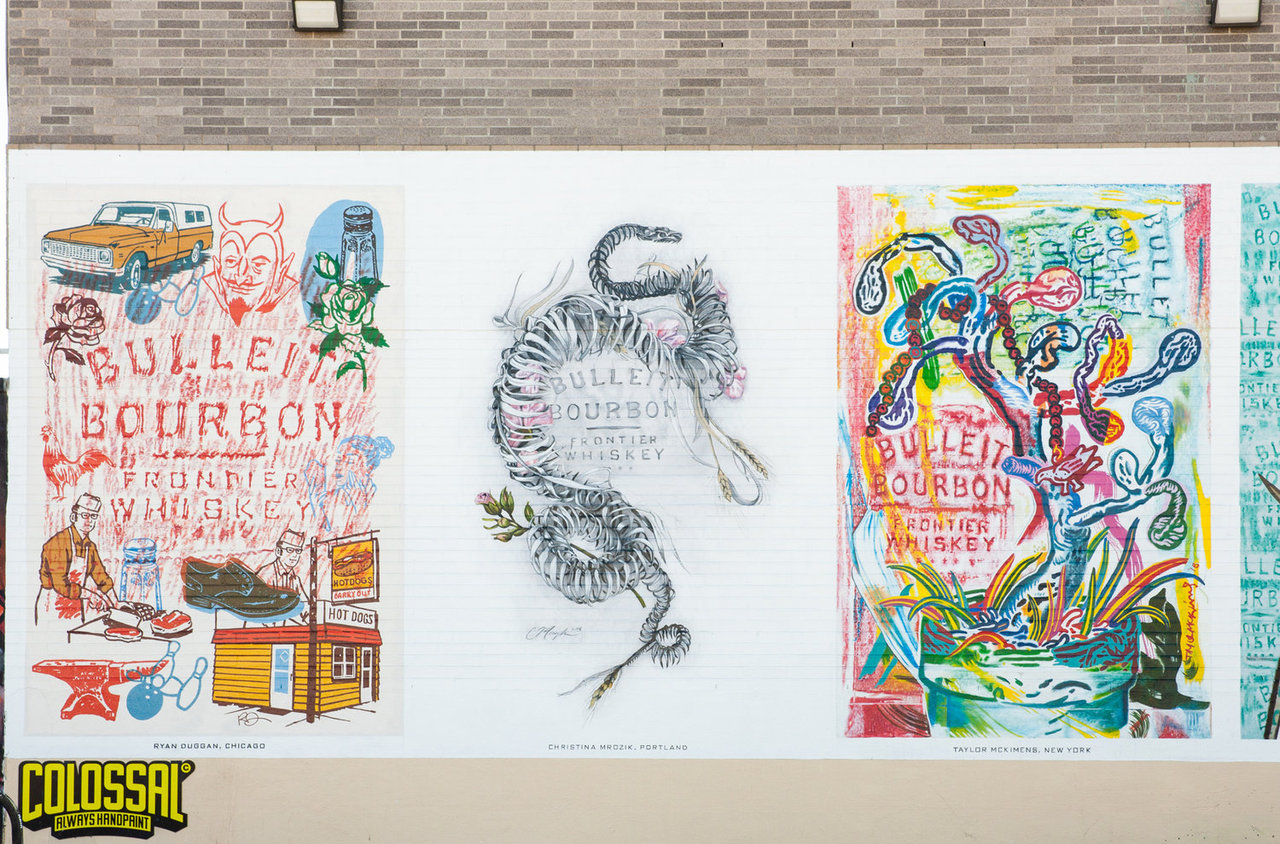 BULLEIT
BOURBON
FRONTIER
WHISKEY
HOTDOGS
CARRY OUT
HOT DOGS
RYAN DUGGAN, CHICAGO
BULLEIT
BOURBON
FRONTIER
WHISKEY
CHRISTINA MROZIK, PORTLAND
BULLEIT
BULLEIT
BOURBON
FRONTIER
WHISKEY
TAYLOR MCKIMENS, NEW YORK
COLOSSAL©
ALWAYS HANDPAINT